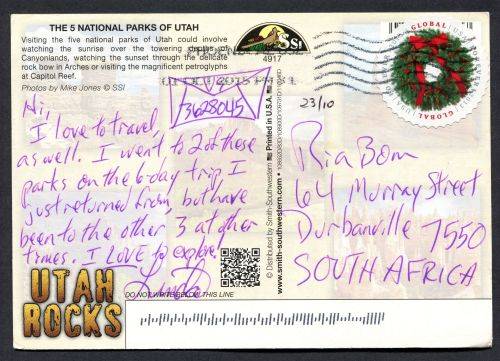 THE 5 NATIONAL PARKS OF UTAH
Visiting the five national parks of Utah could involve
watching the sunrise over the towering depths of
Canyonlands, watching the sunset through the delicate
rock bow in Arches or visiting the magnificent petroglyphs
at Capitol Reef.
Photos by Mike Jones © SSI
SSI
4917
GLOBAL
GLOBAL
GLOBAL
3628045
23/10
Hi,
I love to travel,
as well. I went to 2 of these
parks on the 6 day trip I
just returned from, but have
been to the other 3 at other
times. I LOVE to explore!
Linda
Ria Bom
64 Murray Street
Durbanville 7550
SOUTH AFRICA
© Distributed by Smith-Southwestern
www.smith-southwestern.com
Printed in U.S.A.
UTAH
ROCKS
DO NOT WRITE BELOW THIS LINE